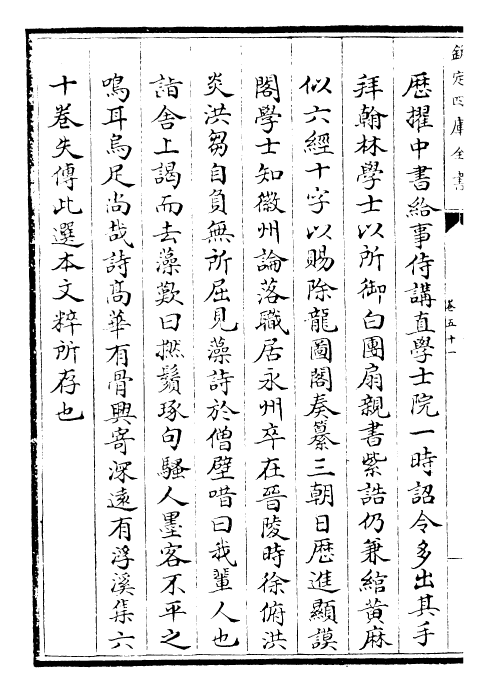 欽定四庫全書
卷五十一
歴擢中書給事侍講直學士院一時詔令多出其手
拜翰林學士以所御白團扇親書紫誥仍兼綰黃麻
似六經十字以賜除龍圖閣奏纂三朝日歴進顯謨
閣學士知徽州論落職居永州卒在晉陵時徐俯洪
炎洪芻自負無所屈見藻詩於僧壁喈曰我輩人也
詣舍上謁而去藻歎曰撚鬚琢句騷人墨客不平之
鳴耳烏足尚哉詩髙華有骨興寄深遠有浮溪集六
十卷失傳此選本文粹所存也